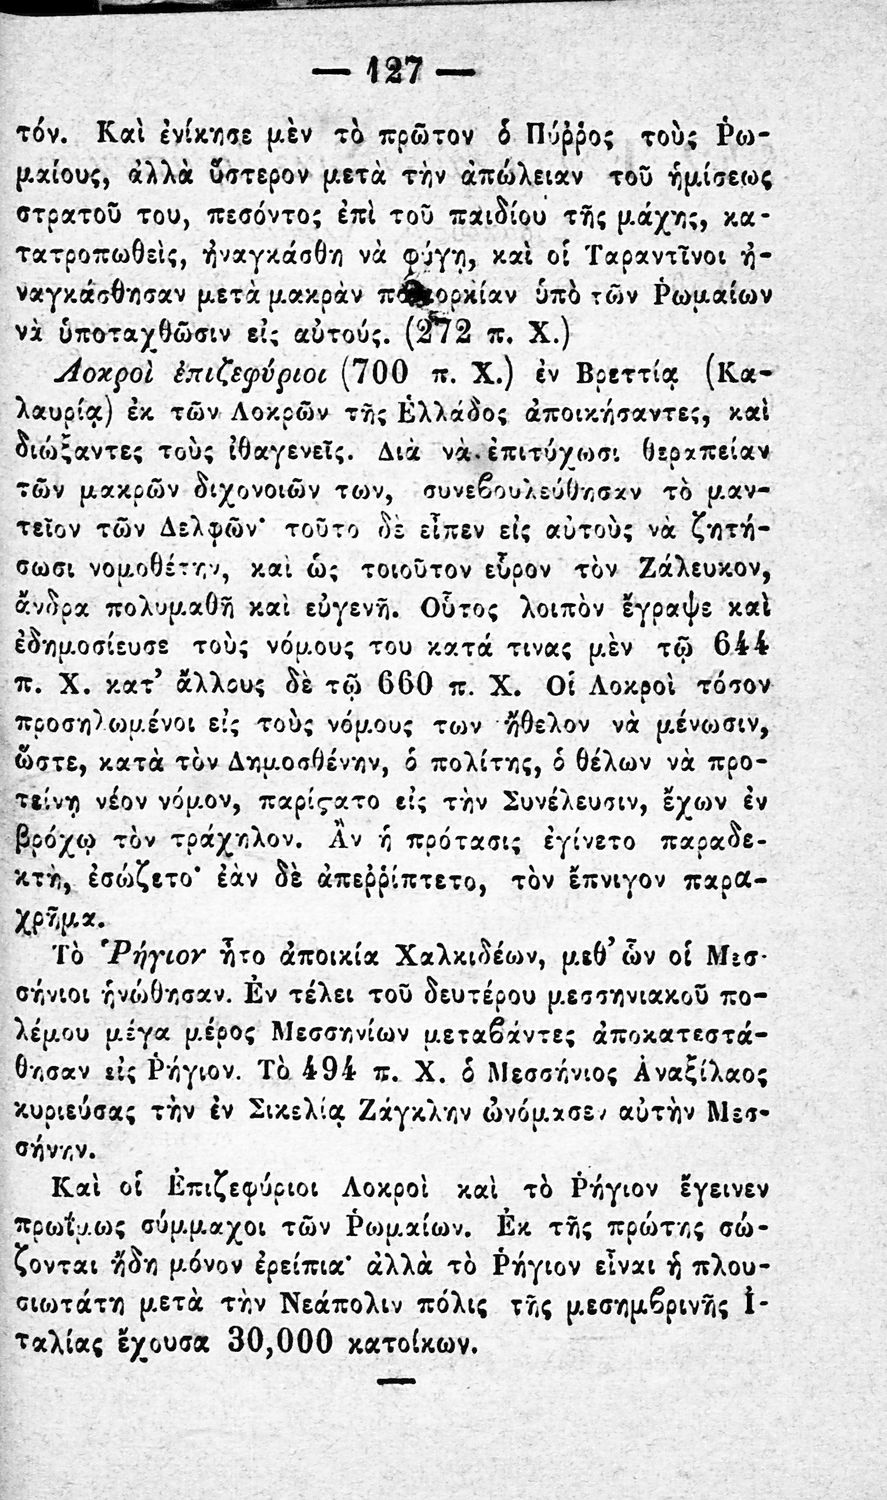 — 127 —
τόν. Καὶ ἐνίκησε μὲν τὸ πρῶτον ὁ Πύῤῥος τοὺς Ῥω-
μαίους, ἀλλὰ ὕστερον μετὰ τὴν ἀπώλειαν τοῦ ἡμίσεως
στρατοῦ του, πεσόντος ἐπὶ τοῦ παιδίου τῆς μάχης, κα-
τατροπωθεὶς, ἠναγκάσθη νὰ φύγῃ, καὶ οἱ Ταραντῖνοι ἠ-
ναγκάσθησαν μετὰ μακρὰν ὑπὸ τῶν Ῥωμαίων
νὰ ὑποταχθῶσιν εἰς αὐτούς. (272 π. Χ.)
Λοκροὶ ἐπιζεφύριοι (700 π. Χ.) ἐν Βρεττίᾳ (Κα-
λαυρίᾳ) ἐκ τῶν Λοκρῶν τῆς Ἑλλάδος ἀποικήσαντες, καὶ
διώξαντες τοὺς ἰθαγενεῖς. Διὰ νὰ ἐπιτύχωσι θεραπείαν
τῶν μακρῶν διχονοιῶν των, συνεβουλεύθησαν τὸ μαν-
τεῖον τῶν Δελφῶν· τοῦτο δὲ εἶπεν εἰς αὐτοὺς νὰ ζητή-
σωσι νομοθέτην, καὶ ὡς τοιοῦτον εὗρον τὸν Ζάλευκον,
ἄνδρα πολυμαθῆ καὶ εὐγενῆ. Οὗτος λοιπὸν ἔγραψε καὶ
ἐδημοσίευσε τοὺς νόμους του κατά τινας μὲν τῷ 644
π. Χ. κατ’ ἄλλους δὲ τῷ 660 π. Χ. Οἱ Λοκροὶ τόσον
προσηλωμένοι εἰς τοὺς νόμους των ἤθελον νὰ μένωσιν,
ὥστε, κατὰ τὸν Δημοσθένην, ὁ πολίτης, ὁ θέλων νὰ προ-
τείνῃ νέον νόμον, παρίςατο εἰς τὴν Συνέλευσιν, ἔχων ἐν
βρόχῳ τὸν τράχηλον. Ἂν ἡ πρότασις ἐγίνετο παραδε-
κτὴ, ἐσώζετο· ἐὰν δὲ ἀπεῤῥίπτετο, τὸν ἔπνιγον παρα-
χρῆμα.
Τὸ Ῥήγιον ἦτο ἀποικία Χαλκιδέων, μεθ’ ὧν οἱ Μεσ-
σήνιοι ἡνώθησαν. Ἐν τέλει τοῦ δευτέρου μεσσηνιακοῦ πο-
λέμου μέγα μέρος Μεσσηνίων μεταβάντες ἀποκατεστά-
θησαν εἰς Ῥήγιον. Τὸ 494 π. Χ. ὁ Μεσσήνιος Ἀναξίλαος
κυριεύσας τὴν ἐν Σικελίᾳ Ζάγκλην ὠνόμασεν αὐτὴν Μεσ-
σήνην.
Καὶ οἱ Ἐπιζεφύριοι Λοκροὶ καὶ τὸ Ῥήγιον ἔγεινεν
πρωΐμως σύμμαχοι τῶν Ῥωμαίων. Ἐκ τῆς πρώτης σώ-
ζονται ἤδη μόνον ἐρείπια· ἀλλὰ τὸ Ῥήγιον εἶναι ἡ πλου-
σιωτάτη μετὰ τὴν Νεάπολιν πόλις τῆς μεσημβρινῆς Ἰ-
ταλίας ἔχουσα 30,000 κατοίκων.